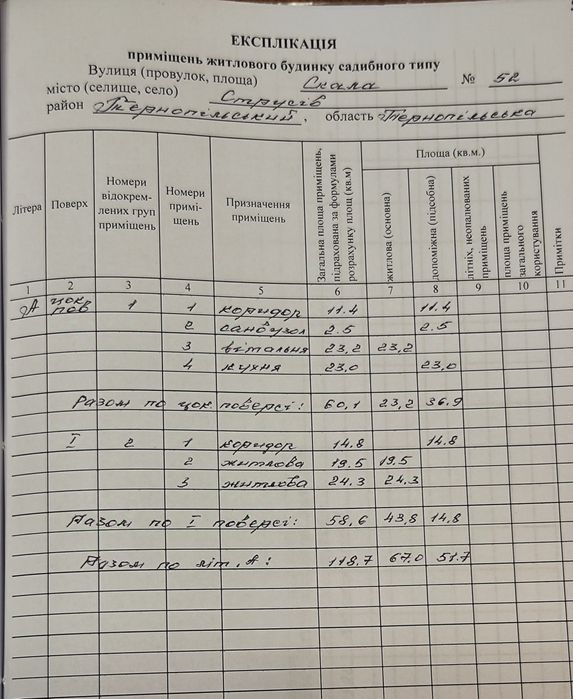 ЕКСПЛІКАЦІЯ
приміщень житлового будинку садибного типу
Вулиця (провулок, площа) Скала № 52
місто (селище, село) Струсів
район Тернопільський, область Тернопільська
Літера Поверх Номери відокрем- лених груп приміщень Номери примі- щень Призначення приміщень Загальна площа приміщень, підрахована за формулами розрахунку площ (кв.м) Площа (кв.м.) житлова (основна) допоміжна (підсобна) літніх, неопалюваних приміщень площа приміщень загального користування Примітки
1 2 3 4 5 6 7 8 9 10 11
А цок. пов 1 1 коридор 11.4 11.4
2 санвузол 2.5 2.5
3 вітальня 23,2 23,2
4 кухня 23,0 23,0
Разом по цок. поверсі: 60,1 23,2 36.9
I 2 1 коридор 14.8 14.8
2 житлова 19.5 19.5
3 житлова 24.3 24.3
Разом по I поверсі: 58,6 43,8 14,8
Разом по літ. А: 118.7 67.0 51.7